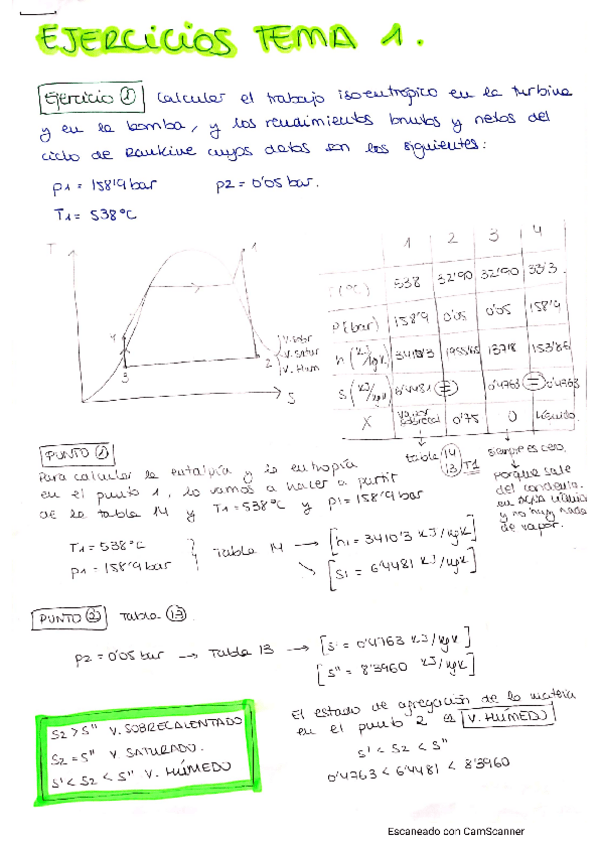 EJERCICIOS TEMA 1.
Ejercicio ① Calcular el trabajo isoentrópico en la turbina
y en la bomba, y los rendimientos brutos y netos del
ciclo de Rankine cuyos datos son los siguientes:
p1 = 158'9 bar p2 = 0'05 bar.
T1 = 538ºC
T
1
4
3
2
S
V. sobr
V. satur
V. Hum
1 2 3 4
T(ºC) 538 32'90 32'90 33'3.
P(bar) 158'9 0'05 0'05 158'9
h (KJ/kgK) 3410'3 137'8 153'86
s (KJ/kgK) 6'4481 = 0'4763 = 0'4763
X vapor 0'75 0 líquido
tabla 14 13/T1
siempre es cero.
porque sale
del condensa.
en agua líquida
y no hay nada
de vapor.
PUNTO ①
Para calcular la entalpía y la entropía
en el punto 1, lo vamos a hacer a partir
de la tabla 14 y T1 = 538ºC y p1 = 158'9 bar
T1 = 538ºC
p1 = 158'9 bar
} Tabla 14 → [h1 = 3410'3 KJ/kgK]
[s1 = 6'4481 KJ/kgK]
PUNTO ② Tabla ⑬
p2 = 0'05 bar → Tabla 13 → [s' = 0'4763 KJ/kgK]
[s'' = 8'3960 KJ/kgK]
S2 > S'' V. SOBRECALENTADO
S2 = S'' V SATURADO.
S' < S2 < S'' V. HÚMEDO
El estado de agregación de la materia
en el punto 2 es V. HÚMEDO
s' < s2 < s''
0'4763 < 6'4481 < 8'3960
Escaneado con CamScanner